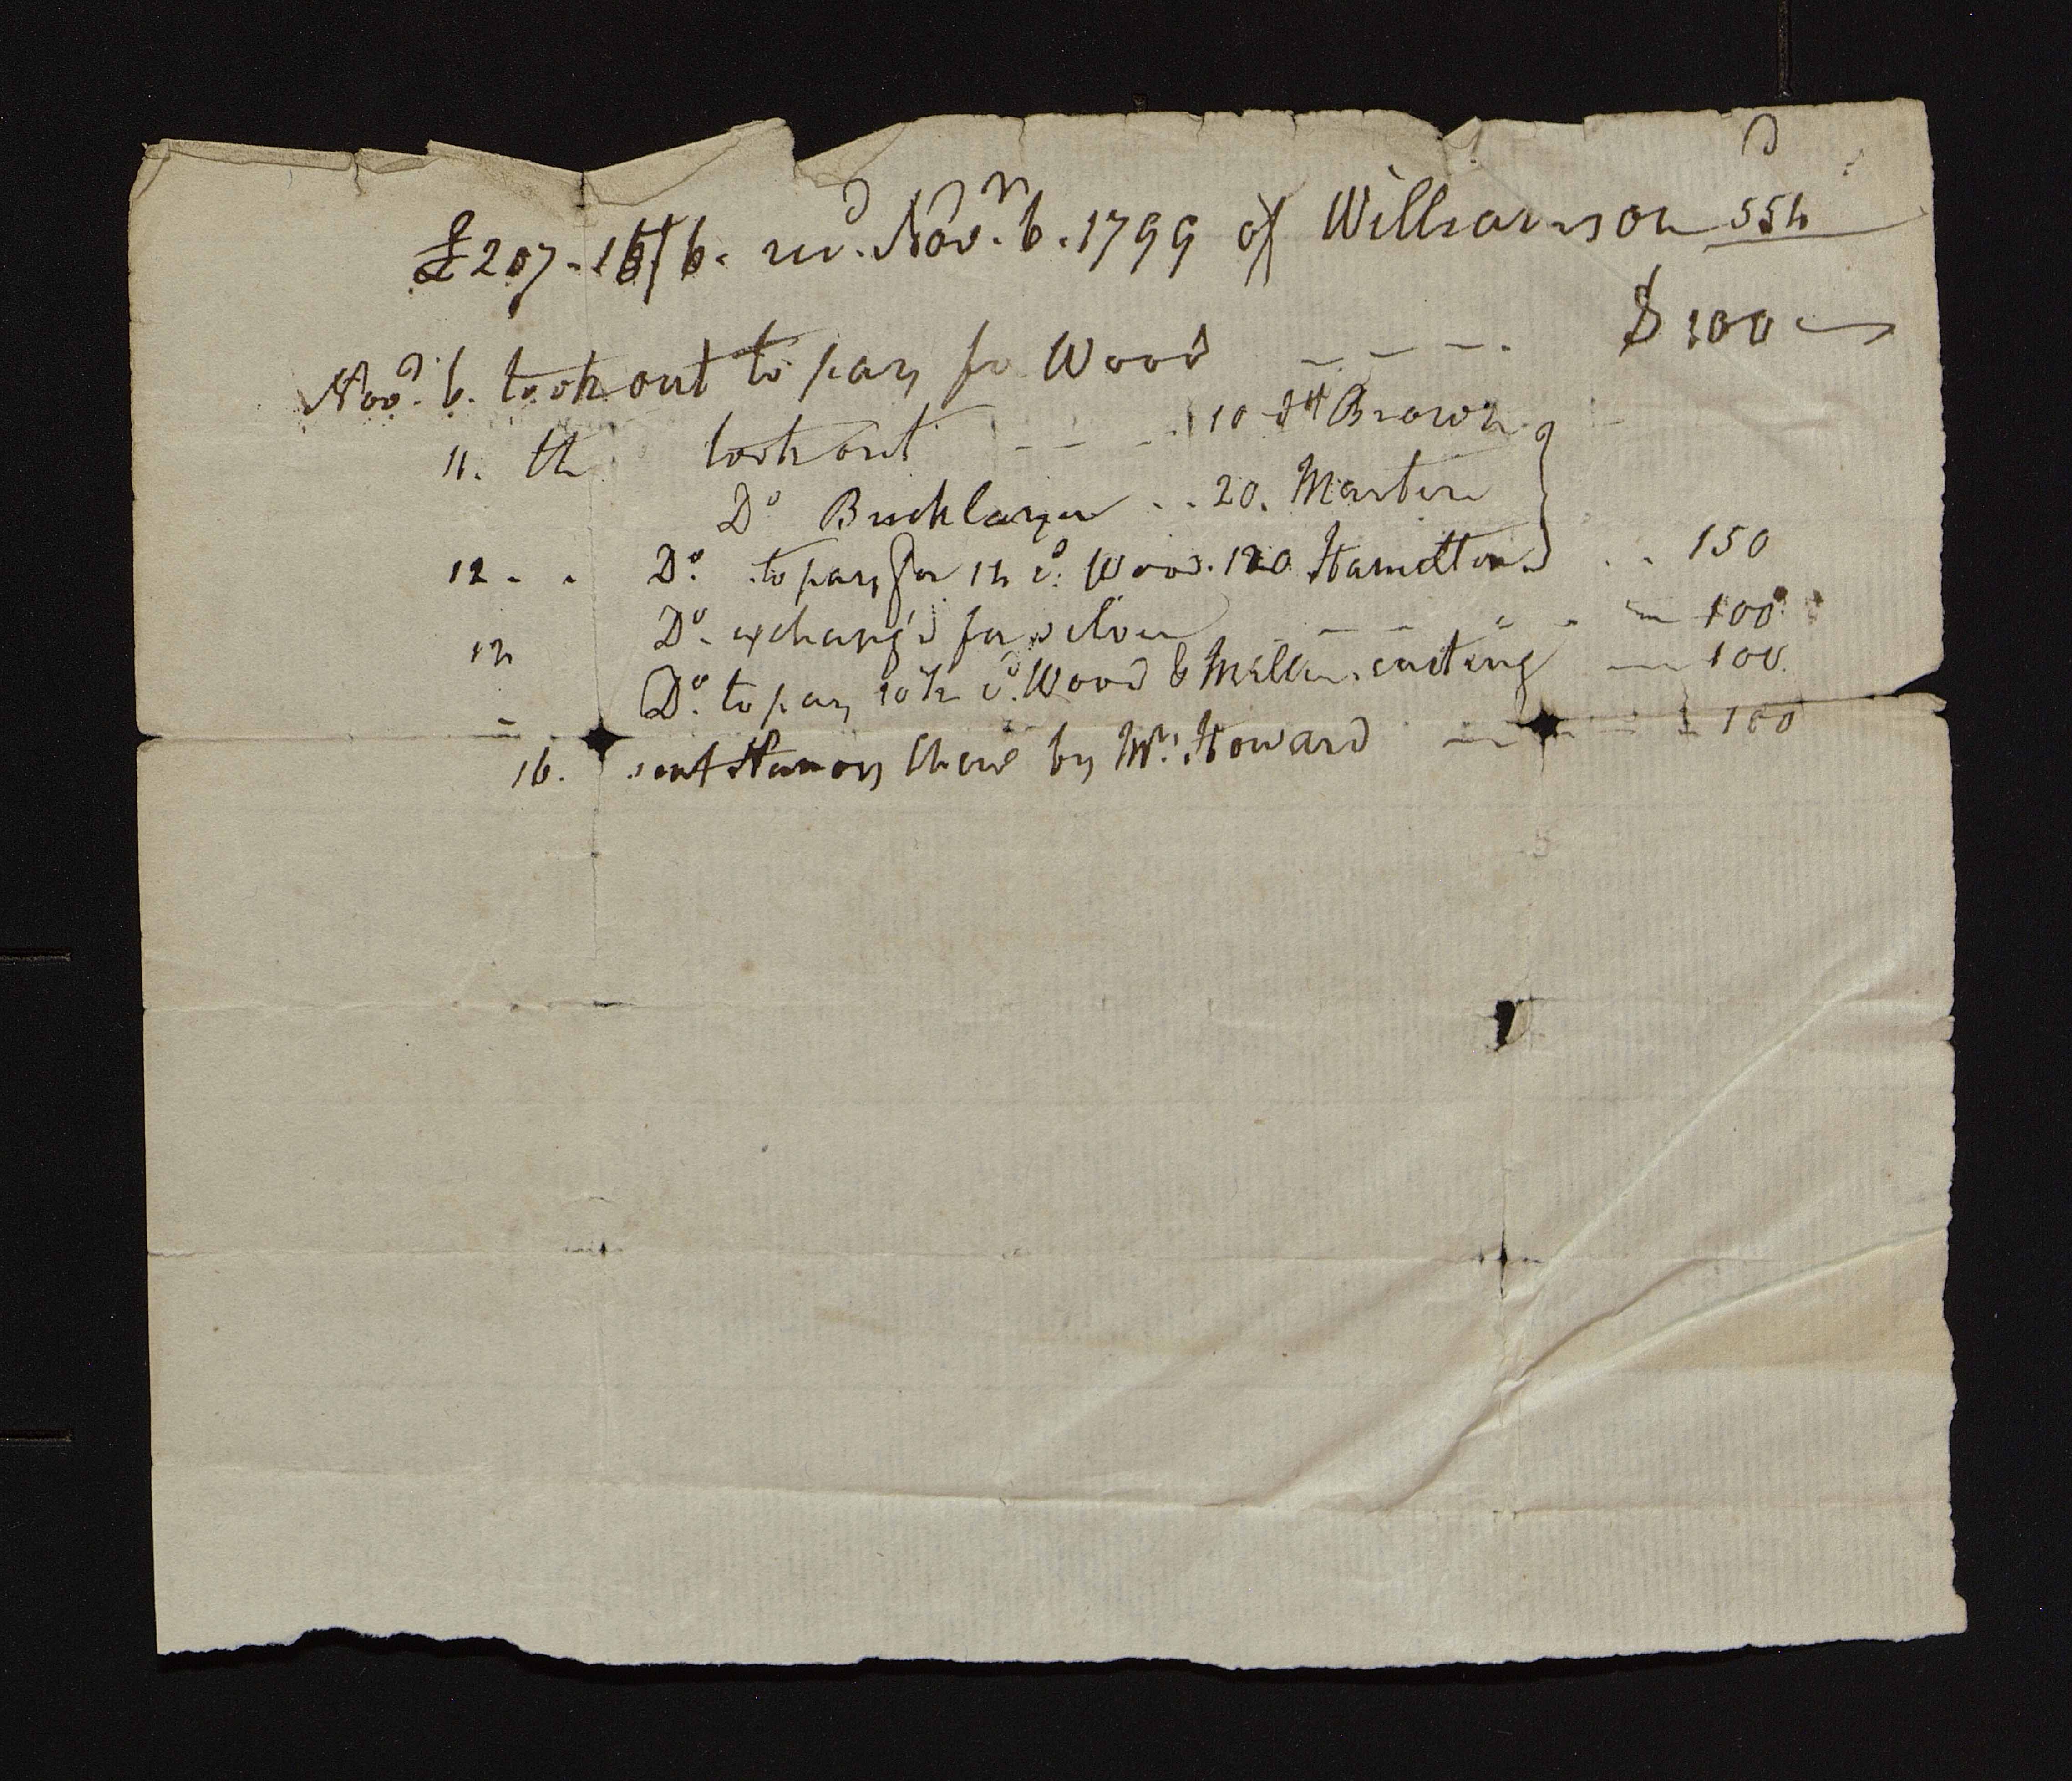 £207-16/6. recd. Novr. 6. 1799 of Williamson 554
Novr. 6. took out to pay for Wood - - - - $ 100
11. th took out - - - 10 Brown
Do Bricklayer . . 20. Martin
12 - . Do. to pay for 12 cd. Wood. 120 Hamilton . . 150
12 Do. exchang'd for silver - - - - 100
- Do. to pay cd. Wood & Miller. carting - 100
16. sent Nancy there by Mr. Howard - - - 100